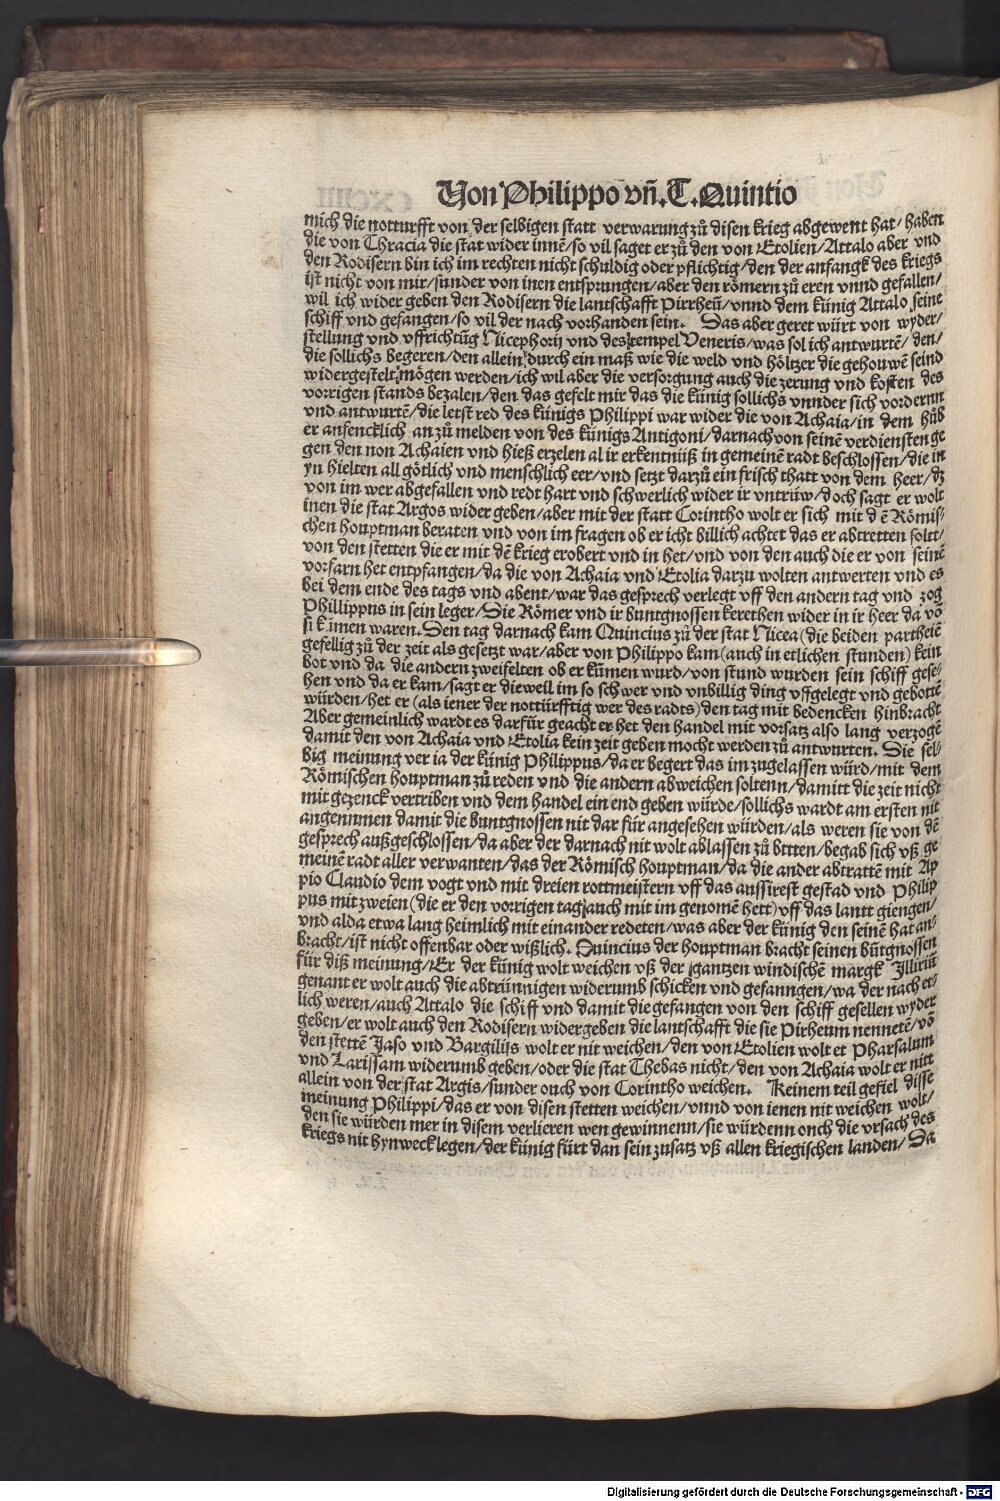 Von Philippo vñ. T. Quintio
mich die notturfft von der selbigen statt verwarung zů disen krieg abgewent hat/ haben
die von Thracia die stat wider innē/ so vil saget er zů den von Etolien/ Attalo aber vnd
den Rodisern bin ich im rechten nicht schuldig oder pflichtig/ den der anfangk des kriegs
ist nicht von mir/ sunder von inen entsprungen/ aber den römern zů eren vnnd gefallen/
wil ich wider geben den Rodisern die lantschafft Pirrheū/ vnnd dem künig Attalo seine
schiff vnd gefangen/ so vil der nach vorhanden sein. Das aber geret würt von wyder/
stellung vnd vffrichtūg Nicephorij vnd des tempel Veneris/ was sol ich antwurtē/ den/
die sollichs begeren/ den allein durch ein maß wie die weld vnd höltzer die gehouwē seind
widergestelt mögen werden/ ich wil aber die versorgung auch die zerung vnd kosten des
vorrigen stands bezalen/ den das gefelt mir das die künig sollichs vnnder sich vordernn
vnd antwurtē/ die letst red des künigs Philippi war wider die von Achaia/ in dem hůb
er anfencklich an zů melden von des künigs Antigoni/ darnach von seinē verdiensten ge
gen den non Achaien vnd hieß erzelen al ir erkentnüß in gemeinē radt beschlossen/ die in
yn hielten all götlich vnd menschlich eer/ vnd setzt darzů ein frisch thatt von dem heer/ dz
von im wer abgefallen vnd redt hart vnd schwerlich wider ir vntrüw/ doch sagt er wolt
inen die stat Argos wider geben/ aber mit der statt Corintho wolt er sich mit dē Römis/
chen houptman beraten vnd von im fragen ob er icht billich achtet das er abtretten soltt/
von den stetten die er mit dē krieg erobert vnd in het/ vnd von den auch die er von seinē
vorfarn het entpfangen/ da die von Achaia vnd Etolia darzu wolten antwerten vnd es
bei dem ende des tags vnd abent/ war das gesprech verlegt vff den andern tag vnd zog
Phillippus in sein leger/ Die Römer vnd ir buntgnossen kerethen wider in ir heer da vō
si kumen waren. Den tag darnach kam Quincius zů der stat Nicea (die beiden partheiē
gefellig zů der zeit als gesetzt war/ aber von Philippo kam (auch in etlichen stunden) kein
bot vnd da die andern zweifelten ob er kūmen wurd/ von stund wurden sein schiff gese/
hen vnd da er kam/ sagt er dieweil im so schwer vnd vnbillig ding vffgelegt vnd gebottē
würden/ het er (als iener der nottürfftig wer des radts) den tag mit bedencken hinbracht
Aber gemeinlich wardt es darfür geacht er het den handel mit vorsatz also lang verzogē
damit den von Achaia vnd Etolia kein zeit geben mocht werden zů antwurten. Die sel/
big meinung ver ia der künig Philippus/ da er begert das im zugelassen würd/ mit dem
Römischen houptman zů reden vnd die andern abweichen soltenn/ damitt die zeit nicht
mit gezenck vertriben vnd dem handel ein end geben würde/ sollichs wardt am ersten nit
angenumen damit die buntgnossen nit dar für angesehen würden/ als weren sie von dē
gesprech außgeschlossen/ da aber der darnach nit wolt ablassen zů bttten/ begab sich vß ge
meinē radt aller verwanten/ das der Römisch houptman/ da die ander abtrattē mit Ap
pio Claudio dem vogt vnd mit dreien rottmeistern vff das aussirest gestad vnd Philip
pus mit zweien (die er den vorrigen tag auch mit im genomē hett) vff das lantt giengen/
vnd alda etwa lang heimlich mit einander redeten/ was aber der künig den seinē hat an/
bracht/ ist nicht offenbar oder wißlich. Quincius der houptman bracht seinen būtgnossen
für diß meinung/ Er der künig wolt weichen vß der gantzen windischē margk Illiriū
genant er wolt auch die abtrünnigen widerumb schicken vnd gefanngen/ wa der nach er/
lich weren/ auch Attalo die schiff vnd damit die gefangen von den schiff gesellen wyder
geben/ er wolt auch den Rodisern widergeben die lantschafft die sie Pirheum nennetē/ vō
den stettē Jaso vnd Bargilijs wolt er nit weichen/ den von Etolien wolt et Pharsalum
vnd Larissam widerumb geben/ oder die stat Thebas nicht/ den von Achaia wolt er nitt
allein von der stat Argis/ sunder ouch von Corintho weichen. Keinem teil gefiel disse
meinung Philippi/ das er von disen stetten weichen/ vnnd von ienen nit weichen wolt/
den sie würden mer in disem verlieren wen gewinnenn/ sie würdenn onch die vrsach des
kriegs nit hynweck legen/ der künig fürt dan sein zusatz vß allen kriegischen landen/ Da
Digitalisierung gefördert durch die Deutsche Forschungsgemeinschaft - DFG